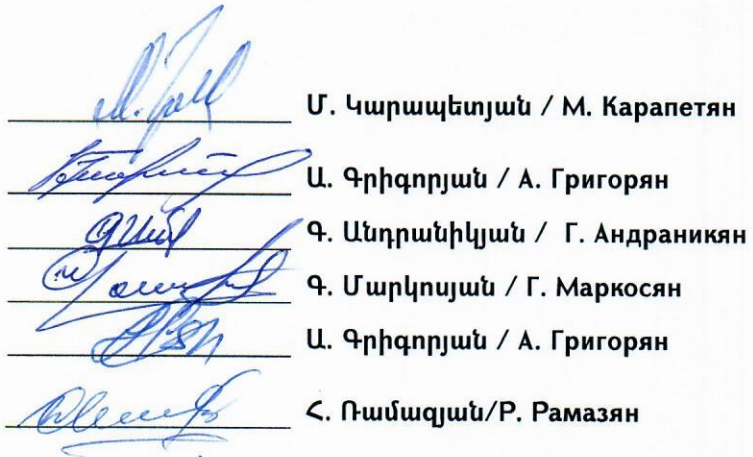 Մ. Կարապետյան / М. Карапетян
Ա. Գրիգորյան / А. Григорян
Գ. Անդրանիկյան / Г. Андраникян
Գ. Մարկոսյան / Г. Маркосян
Ա. Գրիգորյան / А. Григорян
Հ. Ռամազյան/Р. Рамазян